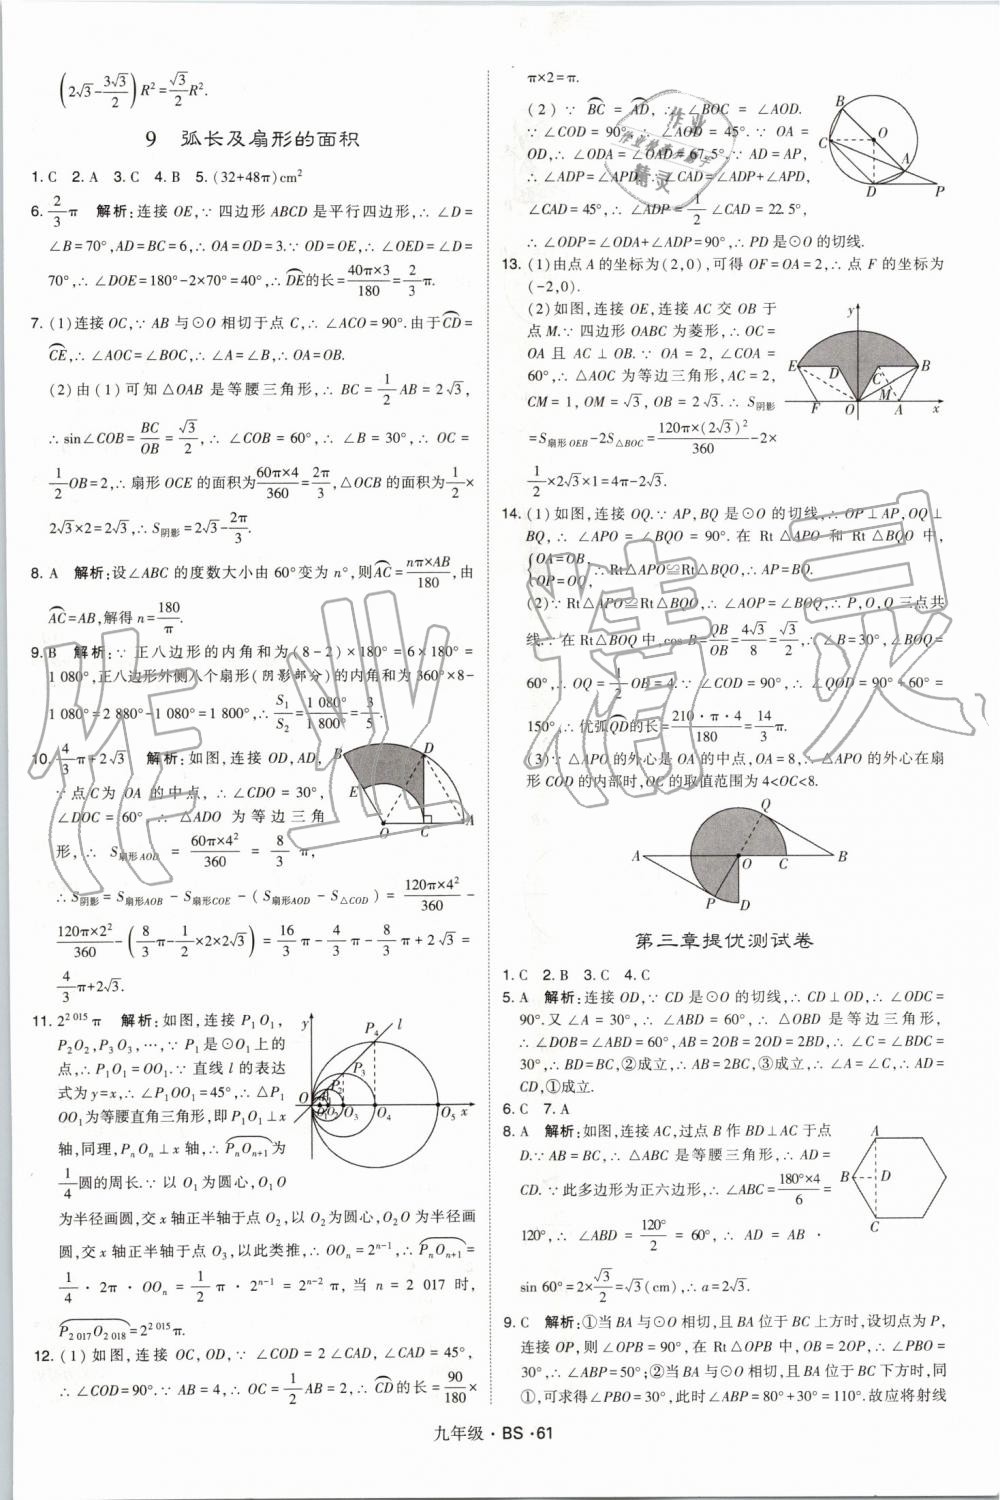 (2√3-3√3/2)R²=√3/2R².
9 弧长及扇形的面积
1. C 2. A 3. C 4. B 5. (32+48π)cm²
6. 2/3π 解析:连接OE,∵四边形ABCD是平行四边形,∴∠D=
∠B=70°,AD=BC=6,∴OA=OD=3.∵OD=OE,∴∠OED=∠D=
70°,∴∠DOE=180°-2×70°=40°,∴DE⌒的长=40π×3/180=2/3π.
7. (1)连接OC,∵AB与⊙O相切于点C,∴∠ACO=90°.由于CD⌒=
CE⌒,∴∠AOC=∠BOC,∴∠A=∠B,∴OA=OB.
(2)由(1)可知△OAB是等腰三角形,∴BC=1/2AB=2√3,
∴sin∠COB=BC/OB=√3/2,∴∠COB=60°,∴∠B=30°,∴OC=
1/2OB=2,∴扇形OCE的面积为60π×4/360=2π/3,△OCB的面积为1/2×
2√3×2=2√3,∴S阴影=2√3-2π/3.
8. A 解析:设∠ABC的度数大小由60°变为n°,则AC⌒=nπ×AB/180,由
AC⌒=AB,解得n=180/π.
9. B 解析:∵正八边形的内角和为(8-2)×180°=6×180°=
1 080°,正八边形外侧八个扇形(阴影部分)的内角和为360°×8-
1 080°=2 880°-1 080°=1 800°,∴S₁/S₂=1 080°/1 800°=3/5.
10. 4/3π+2√3 解析:如图,连接OD,AD,
∵点C为OA的中点,∴∠CDO=30°,
∠DOC=60°∴△ADO为等边三角
形,∴S扇形AOD=60π×4²/360=8/3π,
∴S阴影=S扇形AOB-S扇形COE-(S扇形AOD-S△COD)=120π×4²/360-
120π×2²/360-(8/3π-1/2×2×2√3)=16/3π-4/3π-8/3π+2√3=
4/3π+2√3.
11. 2²⁰¹⁵π 解析:如图,连接P₁O₁,
P₂O₂,P₃O₃,…,∵P₁是⊙O₁上的
点,∴P₁O₁=OO₁.∵直线l的表达
式为y=x,∴∠P₁OO₁=45°,∴△P₁
OO₁为等腰直角三角形,即P₁O₁⊥x
轴,同理,PₙOₙ⊥x轴,∴PₙOₙ₊₁⌒为
1/4圆的周长.∵以O₁为圆心,O₁O
为半径画圆,交x轴正半轴于点O₂,以O₂为圆心,O₂O为半径画
圆,交x轴正半轴于点O₃,以此类推,∴OOₙ=2ⁿ⁻¹,∴PₙOₙ₊₁⌒=
1/4·2π·OOₙ=1/2π·2ⁿ⁻¹=2ⁿ⁻²π,当n=2 017时,
P₂ ₀₁₇O₂ ₀₁₈⌒=2²⁰¹⁵π.
12. (1)如图,连接OC,OD,∵∠COD=2∠CAD,∠CAD=45°,
∴∠COD=90°.∵AB=4,∴OC=1/2AB=2,∴CD⌒的长=90/180×
π×2=π.
(2)∵BC⌒=AD⌒,∴∠BOC=∠AOD.
∵∠COD=90°,∴∠AOD=45°.∵OA=
OD,∴∠ODA=∠OAD=67.5°.∵AD=AP,
∴∠ADP=∠APD.∵∠CAD=∠ADP+∠APD,
∠CAD=45°,∴∠ADP=1/2∠CAD=22.5°,
∴∠ODP=∠ODA+∠ADP=90°,∴PD是⊙O的切线.
B
C
O
A
D
P
13. (1)由点A的坐标为(2,0),可得OF=OA=2,∴点F的坐标为
(-2,0).
(2)如图,连接OE,连接AC交OB于
点M.∵四边形OABC为菱形,∴OC=
OA且AC⊥OB.∵∠COA=
60°,∴△AOC为等边三角形,∴AC=2,
CM=1,OM=√3,OB=2√3.∴S阴影
=S扇形OEB-2S△BOC=120π×(2√3)²/360-2×
1/2×2√3×1=4π-2√3.
y
E
D
C
B
F
O
M
A
x
14. (1)如图,连接OQ.∵AP,BQ是⊙O的切线,∴OP⊥AP,OQ⊥
BQ,∴∠APO=∠BQO=90°.在Rt△APO和Rt△BQO中,
{OA=OB,
OP=OQ,∴Rt△APO≌Rt△BQO,∴AP=BQ.
(2)∵Rt△APO≌Rt△BQO,∴∠AOP=∠BOQ,∴P,O,Q三点共
线.∵在Rt△BOQ中,cos B=QB/OB=4√3/8=√3/2,∴∠B=30°,∠BOQ=
60°,∴OQ=1/2OB=4.∵∠COD=90°,∴∠QOD=90°+60°=
150°,∴优弧QD⌒的长=210·π·4/180=14/3π.
(3)∵△APO的外心是OA的中点,OA=8,∴△APO的外心在扇
形COD的内部时,OC的取值范围为4<OC<8.
A
P
D
O
C
Q
B
第三章提优测试卷
1. C 2. B 3. C 4. C
5. A 解析:连接OD,∵CD是⊙O的切线,∴CD⊥OD,∴∠ODC=
90°.又∠A=30°,∴∠ABD=60°,∴△OBD是等边三角形,
∴∠DOB=∠ABD=60°,AB=2OB=2OD=2BD,∴∠C=∠BDC=
30°,∴BD=BC,②成立,∴AB=2BC,③成立,∴∠A=∠C,∴AD=
CD,①成立.
6. C 7. A
8. A 解析:如图,连接AC,过点B作BD⊥AC于点
D.∵AB=BC,∴△ABC是等腰三角形,∴AD=
CD.∵此多边形为正六边形,∴∠ABC=180°×4/6=
120°,∴∠ABD=120°/2=60°,∴AD=AB·
sin 60°=2×√3/2=√3(cm),∴a=2√3.
A
B
D
C
9. C 解析:①当BA与⊙O相切,且BA位于BC上方时,设切点为P,
连接OP,则∠OPB=90°,在Rt△OPB中,OB=2OP,∴∠PBO=
30°,∴∠ABP=50°;②当BA与⊙O相切,且BA位于BC下方时,同
①,可求得∠PBO=30°,此时∠ABP=80°+30°=110°.故应将射线
九年级·BS·61
作业精灵